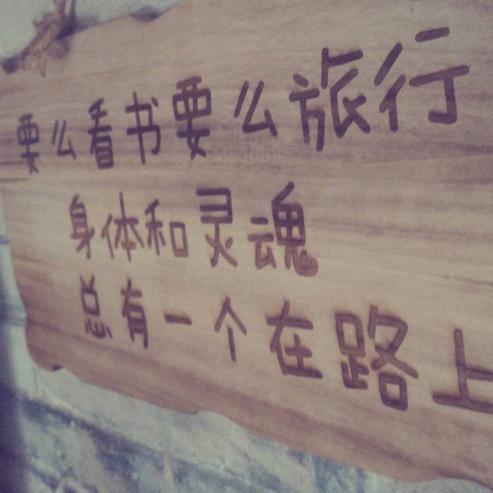 要么看书要么旅行
身体和灵魂
总有一个在路上